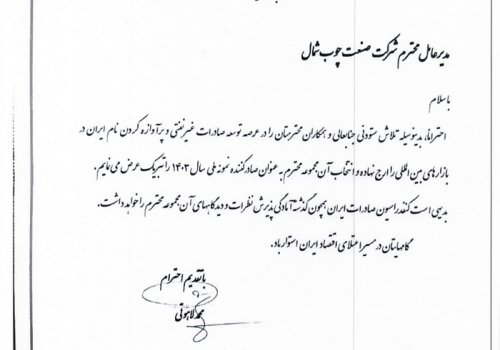 مدیرعامل محترم شرکت صنعت چوب شمال
باسلام
احتراماً، بدینوسیله تلاش ستودنی جنابعالی و همکاران محترمتان را در عرصه توسعه صادرات غیرنفتی و پرآوازه کردن نام ایران در
بازارهای بین المللی را ارج نهاده و انتخاب آن مجموعه محترم به عنوان صادرکننده نمونه ملی سال ۱۴۰۳ را تبریک عرض می نمایم.
بدیهی است کنفدراسیون صادرات ایران همچون گذشته آمادگی پذیرش نظرات و دیدگاههای آن مجموعه محترم را خواهد داشت.
گامهایتان در مسیر اعتلای اقتصاد ایران استوار باد.
با تقدیم احترام
محمد لاهوتی